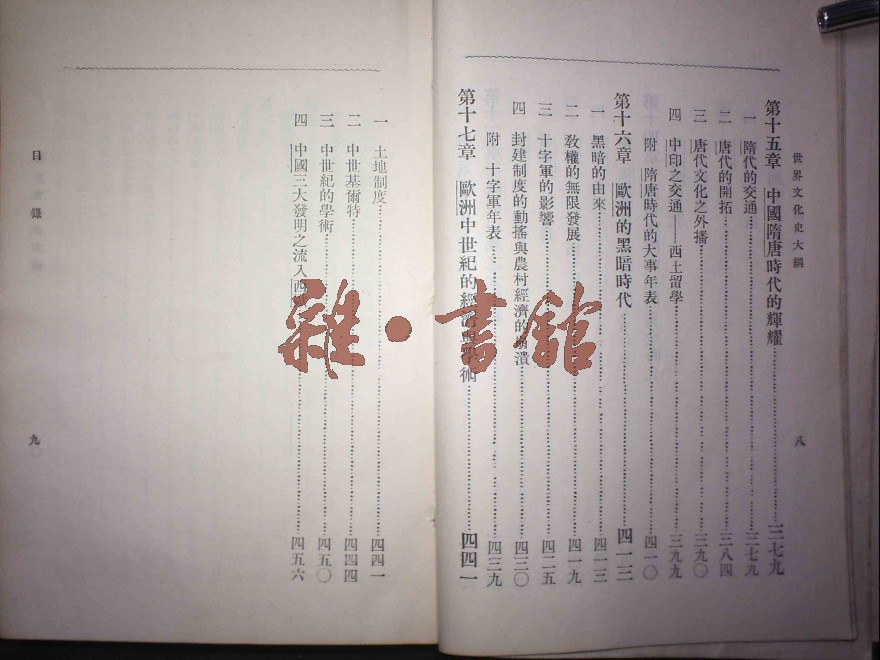 世界文化史大綱
八
第十五章 中國隋唐時代的輝耀……三七九
一 隋代的交通……三七九
二 唐代的開拓……三八四
三 唐代文化之外播……三九〇
四 中印之交通——西土留學……三九九
附 隋唐時代的大事年表……四一〇
第十六章 歐洲的黑暗時代……四一三
一 黑暗的由來……四一三
二 教權的無限發展……四一九
三 十字軍的影響……四二五
四 封建制度的動搖與農村經濟的崩潰……四三〇
附 十字軍年表……四三九
第十七章 歐洲中世紀的經濟與學術……四四一
一 土地制度……四四一
二 中世基爾特……四四四
三 中世紀的學術……四五〇
四 中國三大發明之流入西……四五六
目錄
九
雜·書館